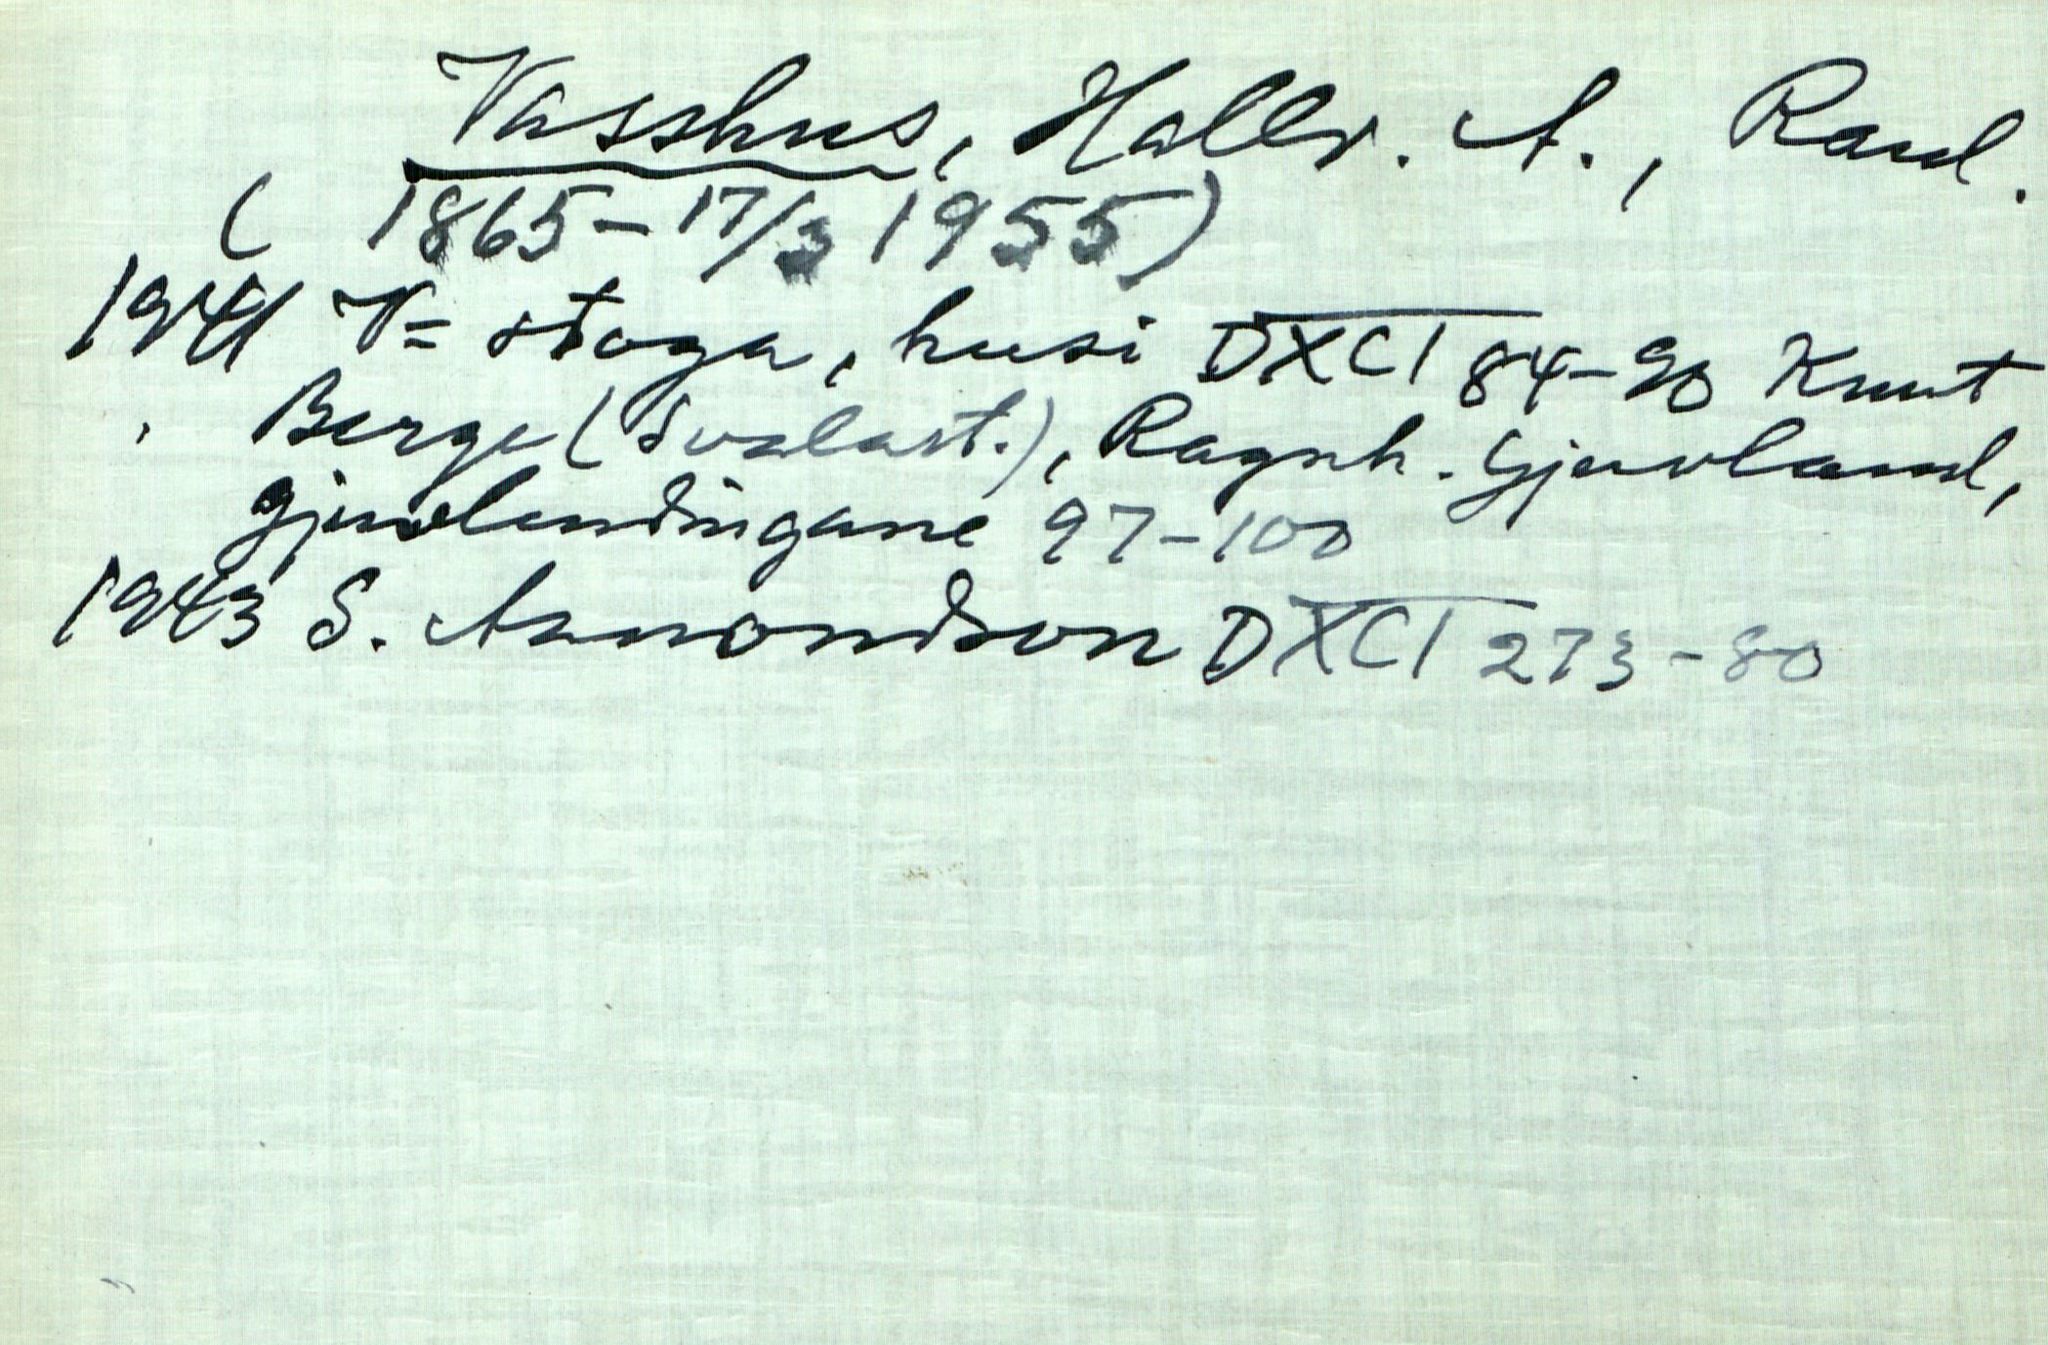 Vasshus, Hallv. A., Raul.
( 1865-17/3 1955)
1941 V= stoga, husi DXCI 84-90 Knut
Berge (Svalast.), Ragnh. Gjuvland,
gjuvlendingane 97-100
1943 S. Asmondson DXCI 273-80